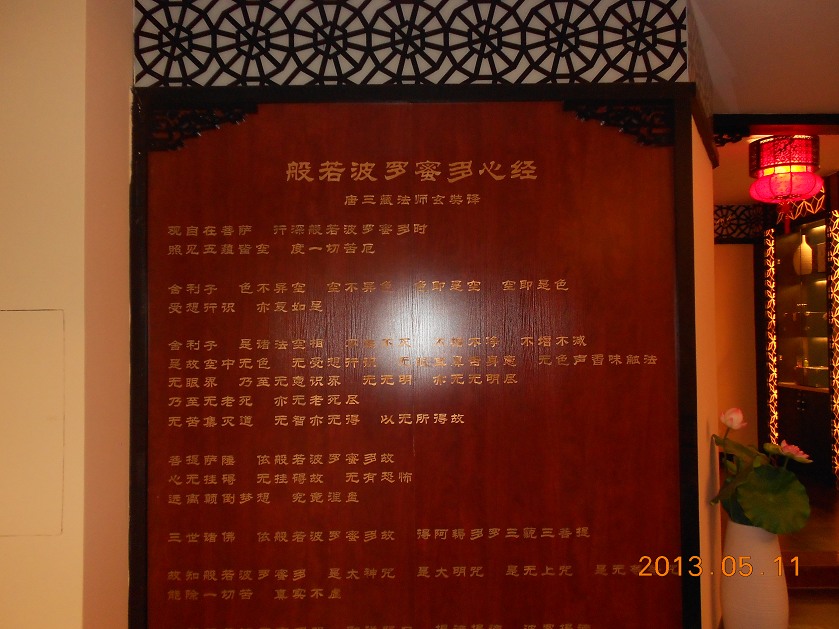 般若波罗蜜多心经
唐三藏法师玄奘译
观自在菩萨 行深般若波罗蜜多时
照见五蕴皆空 度一切苦厄
舍利子 色不异空 空不异色 色即是空 空即是色
受想行识 亦复如是
舍利子 是诸法空相 不垢不净 不增不减
是故空中无色 无受想行识 无眼耳鼻舌身意 无色声香味触法
无眼界 乃至无意识界 无无明 亦无无明尽
乃至无老死 亦无老死尽
无苦集灭道 无智亦无得 以无所得故
菩提萨埵 依般若波罗蜜多故
心无挂碍 无挂碍故 无有恐怖
远离颠倒梦想 究竟涅盘
三世诸佛 依般若波罗蜜多故 得阿耨多罗三藐三菩提
故知般若波罗蜜多 是大神咒 是大明咒 是无上咒 是无
能除一切苦 真实不虚
2013.05.11